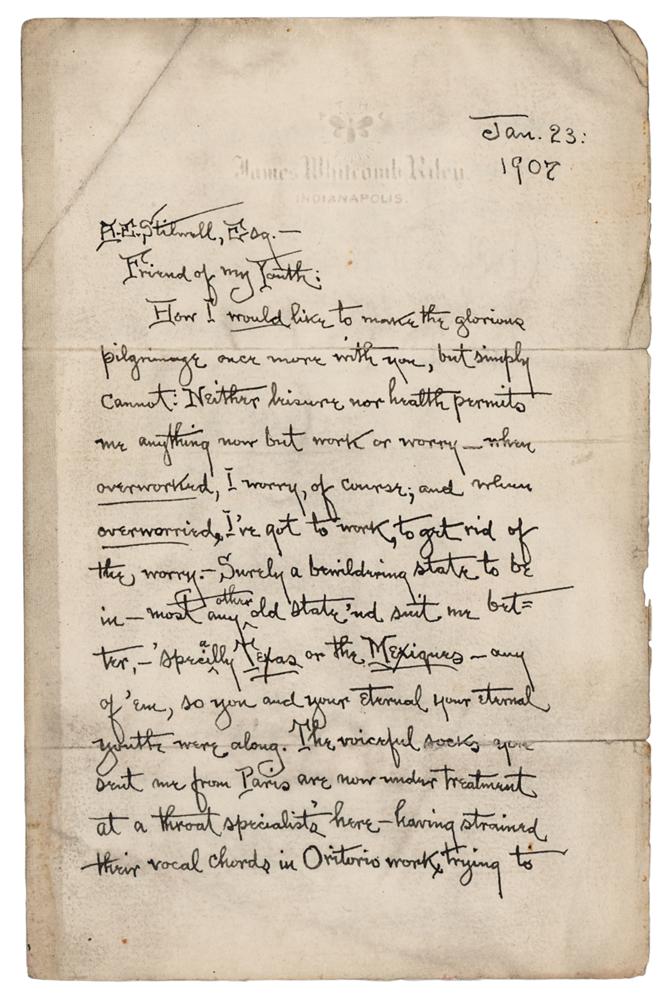 James Whitcomb Riley
INDIANAPOLIS.
Jan. 23:
1907
A.E. Stilwell, Esq.—
Friend of my Youth:
How I would like to make the glorious
pilgrimage once more with you, but simply
cannot: Neither leisure nor health permits
me anything now but work or worry—when
overworked, I worry, of course; and when
overworried, I've got to work, to get rid of
the worry.—Surely a bewildering state to be
in—most any other old state 'nd suit me bet=
ter,—'specially Texas or the Mexiques—any
of 'em, so you and your eternal your eternal
youth were along. The voiceful socks you
sent me from Paris are now under treatment
at a throat specialist's here—having strained
their vocal chords in Oritorio work, trying to